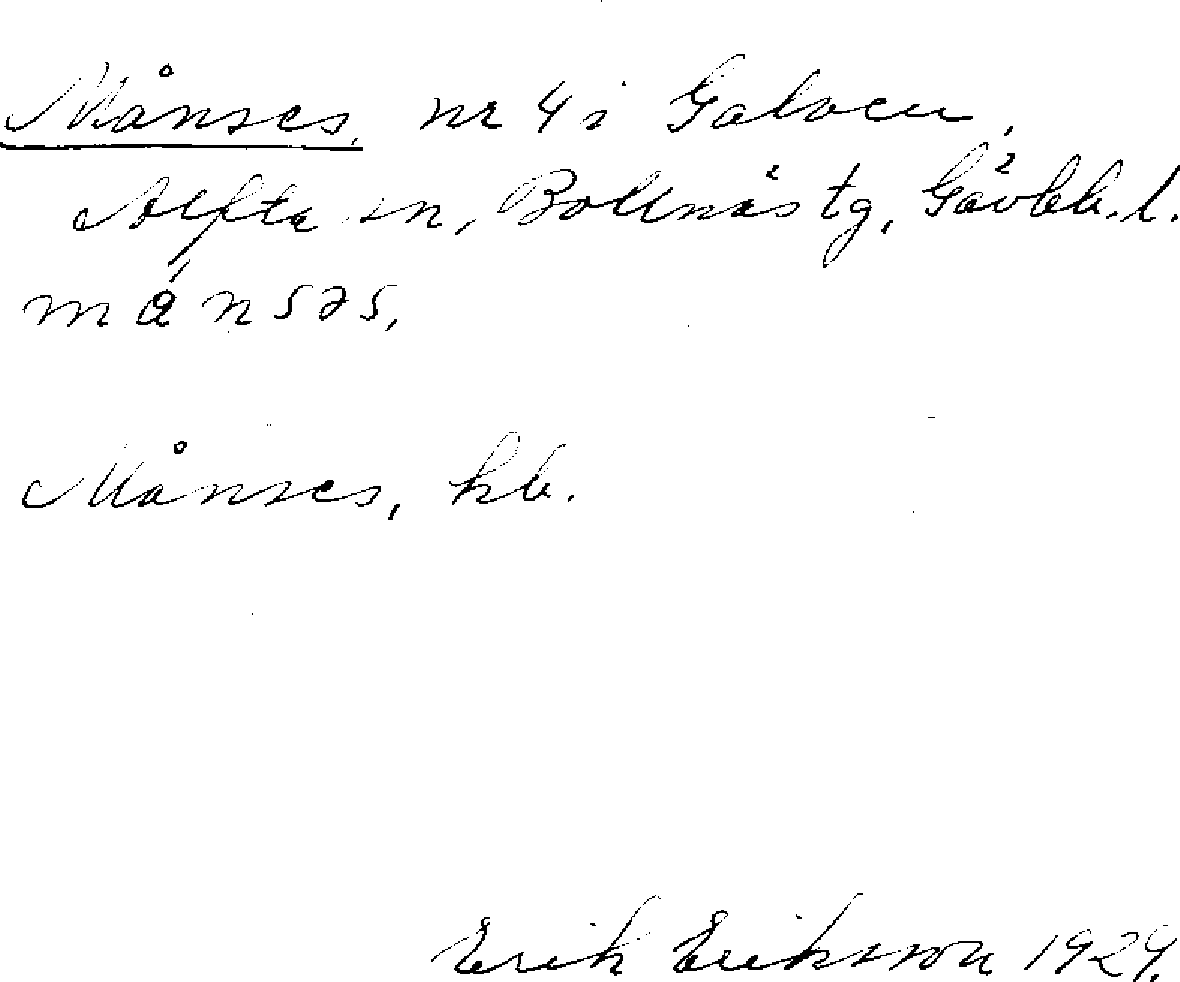 Månses, nr 4 i Galven,
Alfta sn, Bollnäs tg, Gävleb. l.
månsəs,
Månses, kb.
Erik Eriksson 1929.